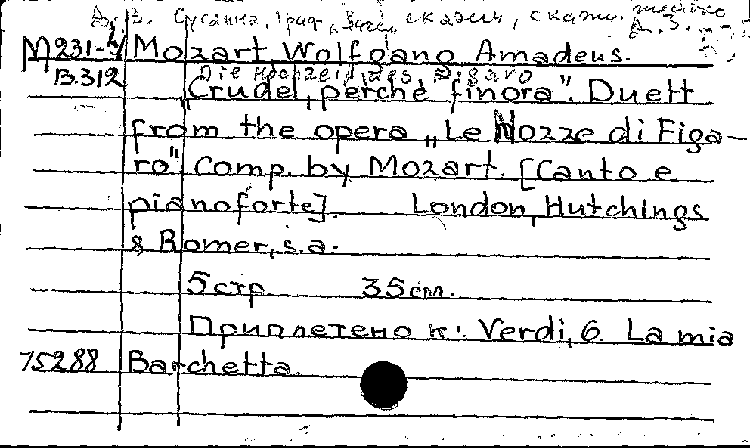 Сусанна, скажи, скажи.
M231-4 Mozart, Wolfgang Amadeus.
B.312 Die Hochzeit des Figaro
„Crudel, perchè finora". Duett
from the opera „Le Nozze di Figa-
ro" Comp. by Mozart. [Canto e
pianoforte]. London, Hutchings
& Romer, s.a.
5 стр 35 см.
Приплетено к: Verdi, G. La mia
75288 Barchetta.